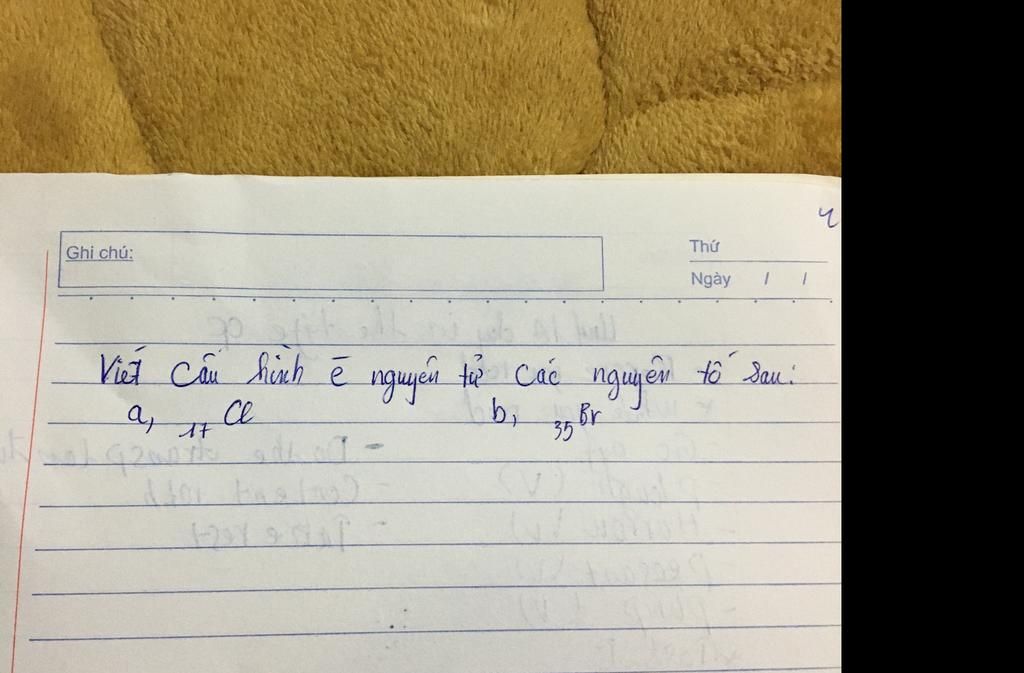 4
Ghi chú:
Thứ
Ngày / /
Viết cấu hình ē nguyên tử các nguyên tố sau:
a, ₁₇Cl b, ₃₅Br